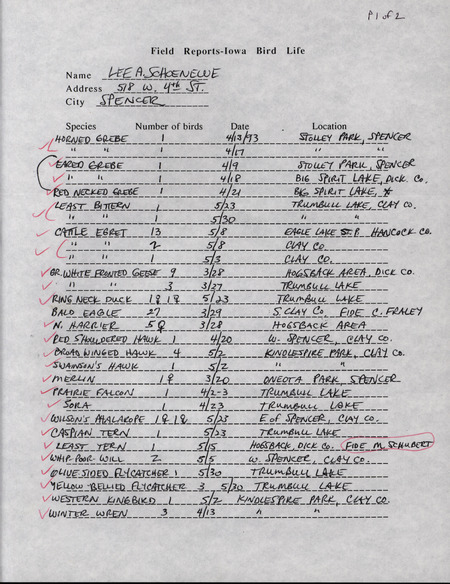 P 1 of 2
Field Reports-Iowa Bird Life
Name LEE A. SCHOENEWE
Address 518 W. 4th ST.
City SPENCER
Species Number of birds Date Location
HORNED GREBE 1 4/13/93 STOLLEY PARK, SPENCER
" " 1 4/17 " "
EARED GREBE 1 4/9 STOLLEY PARK, SPENCER
" " 1 4/18 BIG SPIRIT LAKE, DICK. CO.
RED NECKED GREBE 1 4/21 BIG SPIRIT LAKE, *
LEAST BITTERN 1 5/23 TRUMBULL LAKE, CLAY CO.
" " 1 5/30 " "
CATTLE EGRET 13 5/8 EAGLE LAKE ST.P. HANCOCK CO.
" " 2 5/8 CLAY CO.
" " 1 5/3 CLAY CO.
GR. WHITE FRONTED GEESE 9 3/28 HOGSBACK AREA, DICK CO.
" " 3 3/27 TRUMBULL LAKE
RING NECK DUCK 1♂ 1♀ 5/23 TRUMBULL LAKE
BALD EAGLE 27 3/29 S. CLAY CO. FIDE C. FRALEY
N. HARRIER 5♀ 3/28 HOGSBACK AREA
RED SHOULDERED HAWK 1 4/20 W. SPENCER, CLAY CO.
BROAD WINGED HAWK 4 5/2 KINDLESPIRE PARK, CLAY CO.
SWAINSON'S HAWK 1 5/2 " "
MERLIN 1♀ 3/20 ONEOTA PARK, SPENCER
PRAIRIE FALCON 1 4/2-3 TRUMBULL LAKE
SORA 1 4/23 TRUMBULL LAKE
WILSON'S PHALAROPE 1♂ 1♀ 5/23 E of SPENCER, CLAY CO.
CASPIAN TERN 1 5/23 TRUMBULL LAKE
LEAST TERN 1 5/5 HOGSBACK, DICK CO. FIDE M. SCHUBERT
WHIP POOR WILL 2 5/5 W. SPENCER, CLAY CO.
OLIVE SIDED FLYCATCHER 1 5/30 TRUMBULL LAKE
YELLOW BELLIED FLYCATCHER 3 5/30 TRUMBULL LAKE
WESTERN KINGBIRD 1 5/2 KINDLESPIRE PARK, CLAY CO.
WINTER WREN 3 4/13 " "